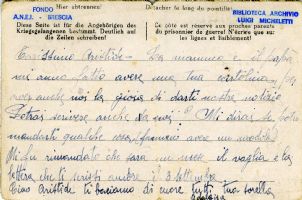 FONDO
A.N.E.I. - BRESCIA
Hier abtrennen!
Détacher le long du pointillé
BIBLIOTECA ARCHIVIO
LUIGI MICHELETTI
Diese Seite ist für die Angehörigen des
Kriegsgefangenen bestimmt. Deutlich auf
die Zeilen schreiben!
Ce côté est réservé aux proches parents
du prisonnier de guerre! N'écrire que sur
les lignes et lisiblement!
Carissimo Aristide - La mamma e papà
mi anno fatto avere una tua cartolina,
anche noi la gioia di darti nostre notizie
Potrai scrivere anche da noi? Mi dirai se
mandarti qualche cosa, avere un modulo
Mi fu rimandato che sarà un mese il vaglia e la
lettera che ti scrissi ancora il 3 settembre
Ciao Aristide ti baciamo di cuore tutti tua sorella